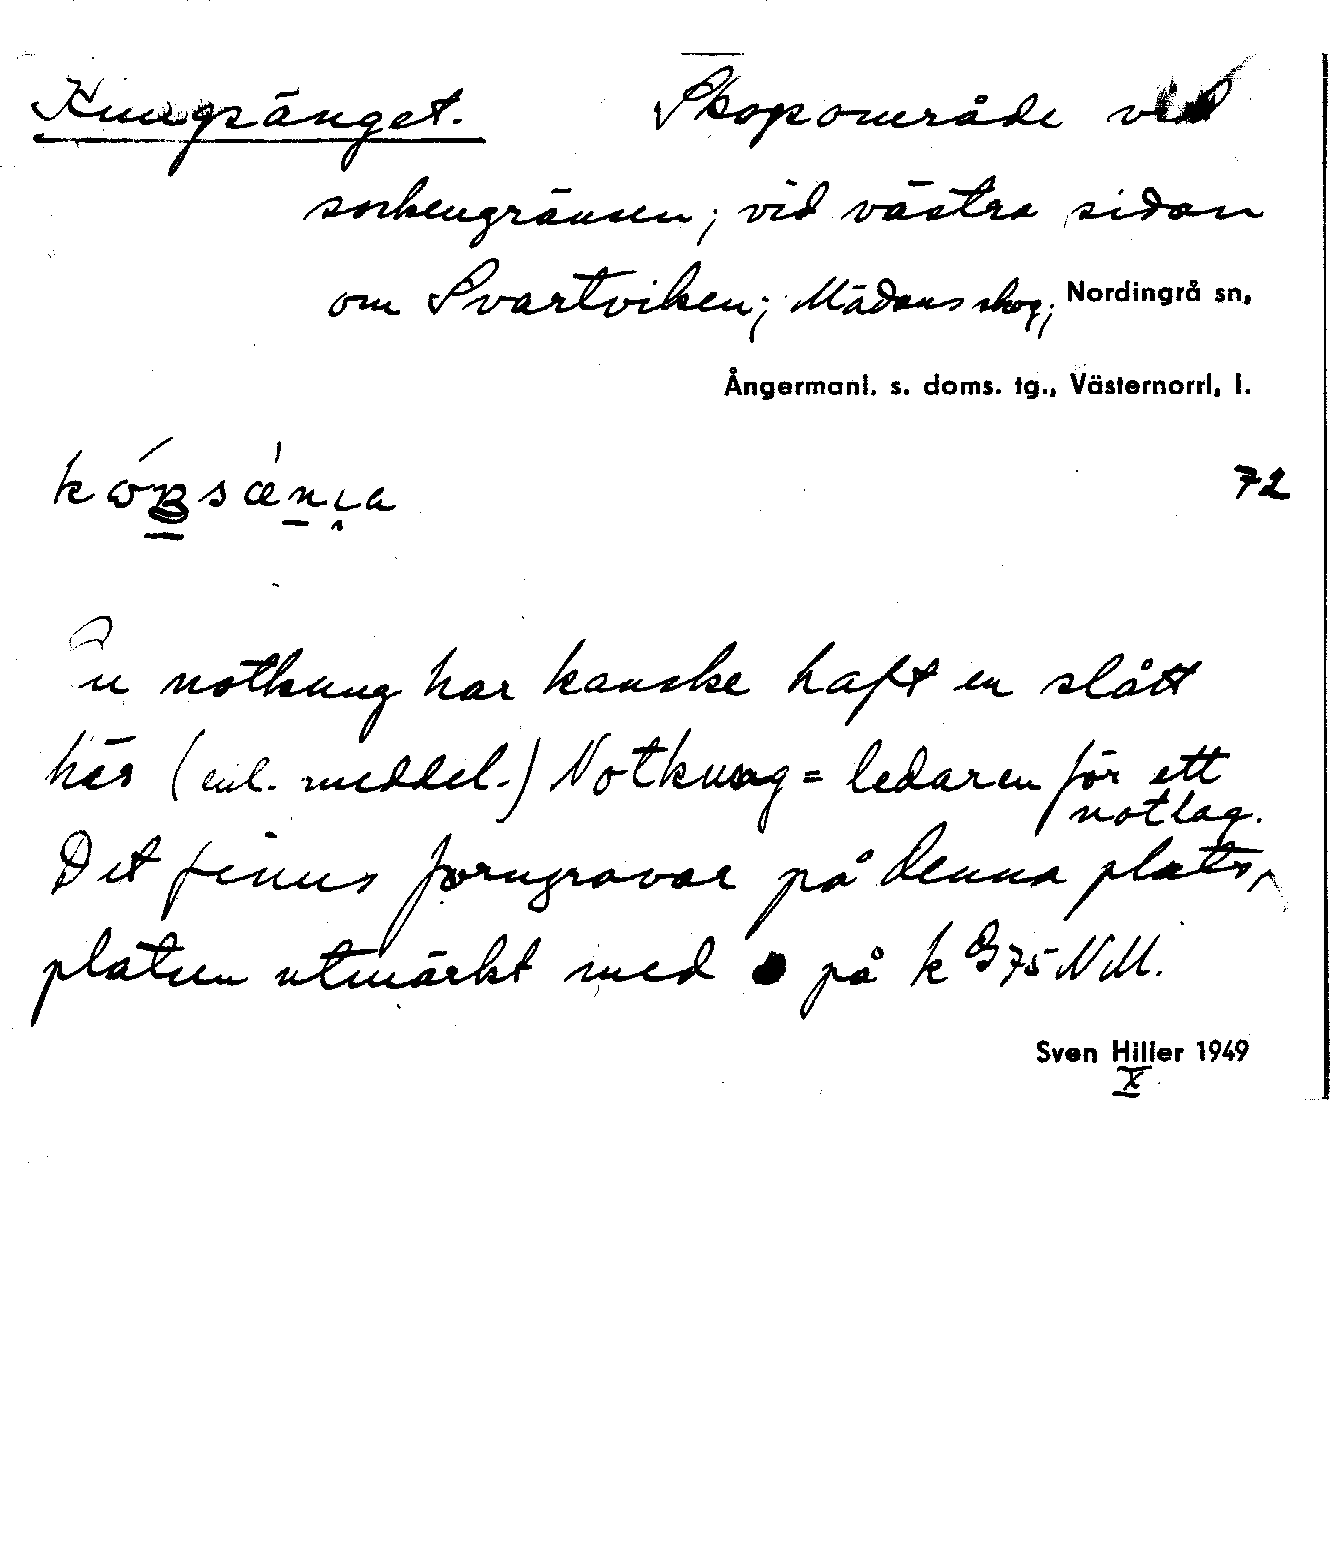 Kungsänget. Skogsområde vid
sockengränsen; vid västra sidan
om Svartviken; Mädans skog; Nordingrå sn,
Ångermanl. s. doms. tg., Västernorrl. l.
72
En notkung har kanske haft en slått
här (enl. meddel.) Notkung = ledaren för ett
notlag.
Det finns forngravar på denna plats,
platsen utmärkt med på k B 75 NM.
Sven Hiller 1949
X